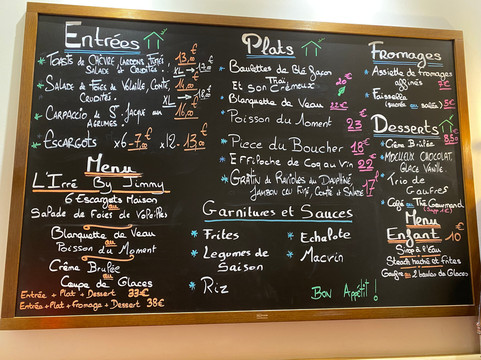 Entrées
Toasts de Chèvre, Lardons, Fumés, 13,00 €
Salade et Crudités. XL
Salade de Foies de Volaille, Comté, 14,00
Crudités. XL → 18,00
Carpaccio de St Jacque aux 16,00
Agrumes.
Escargots x6 - 7,00 x12 - 13,00 €
Menu
L'Irré By Jimmy
6 Escargots Maison
ou
Salade de Foies de Volailles
Blanquette de Veau
ou
Poisson du Moment
Crème Brulée
ou
Coupe de Glaces
Entrée + Plat + Dessert 33€
Entrée + Plat + Fromage + Dessert 38€
Plats
Boulettes de Blé façon
Thaï, 20€
Et son Crémeux
Blanquette de Veau 22€
Poisson du Moment 23€
Piece du Boucher 18€
Effiloche de Coq au Vin 22€
Gratin de Ravioles du Dauphiné 17€
Jambon cru Fumé, Comté et Salade
Garnitures et Sauces
Frites
Legumes de
Saison
Riz
Echalote
Macvin
Bon Appétit !
Fromages
Assiette de fromages
affinés 7€
Faisselle
(sucrée ou salée) 5€
Desserts
8,50€
Crème Brulée
Moelleux Chocolat,
Glace Vanille
Trio de
Gaufres
Café ou Thé Gourmand
Menu
Enfant 10€
Sirop à l'Eau
Steack haché et frites
Gaufre ou 2 boules de Glaces